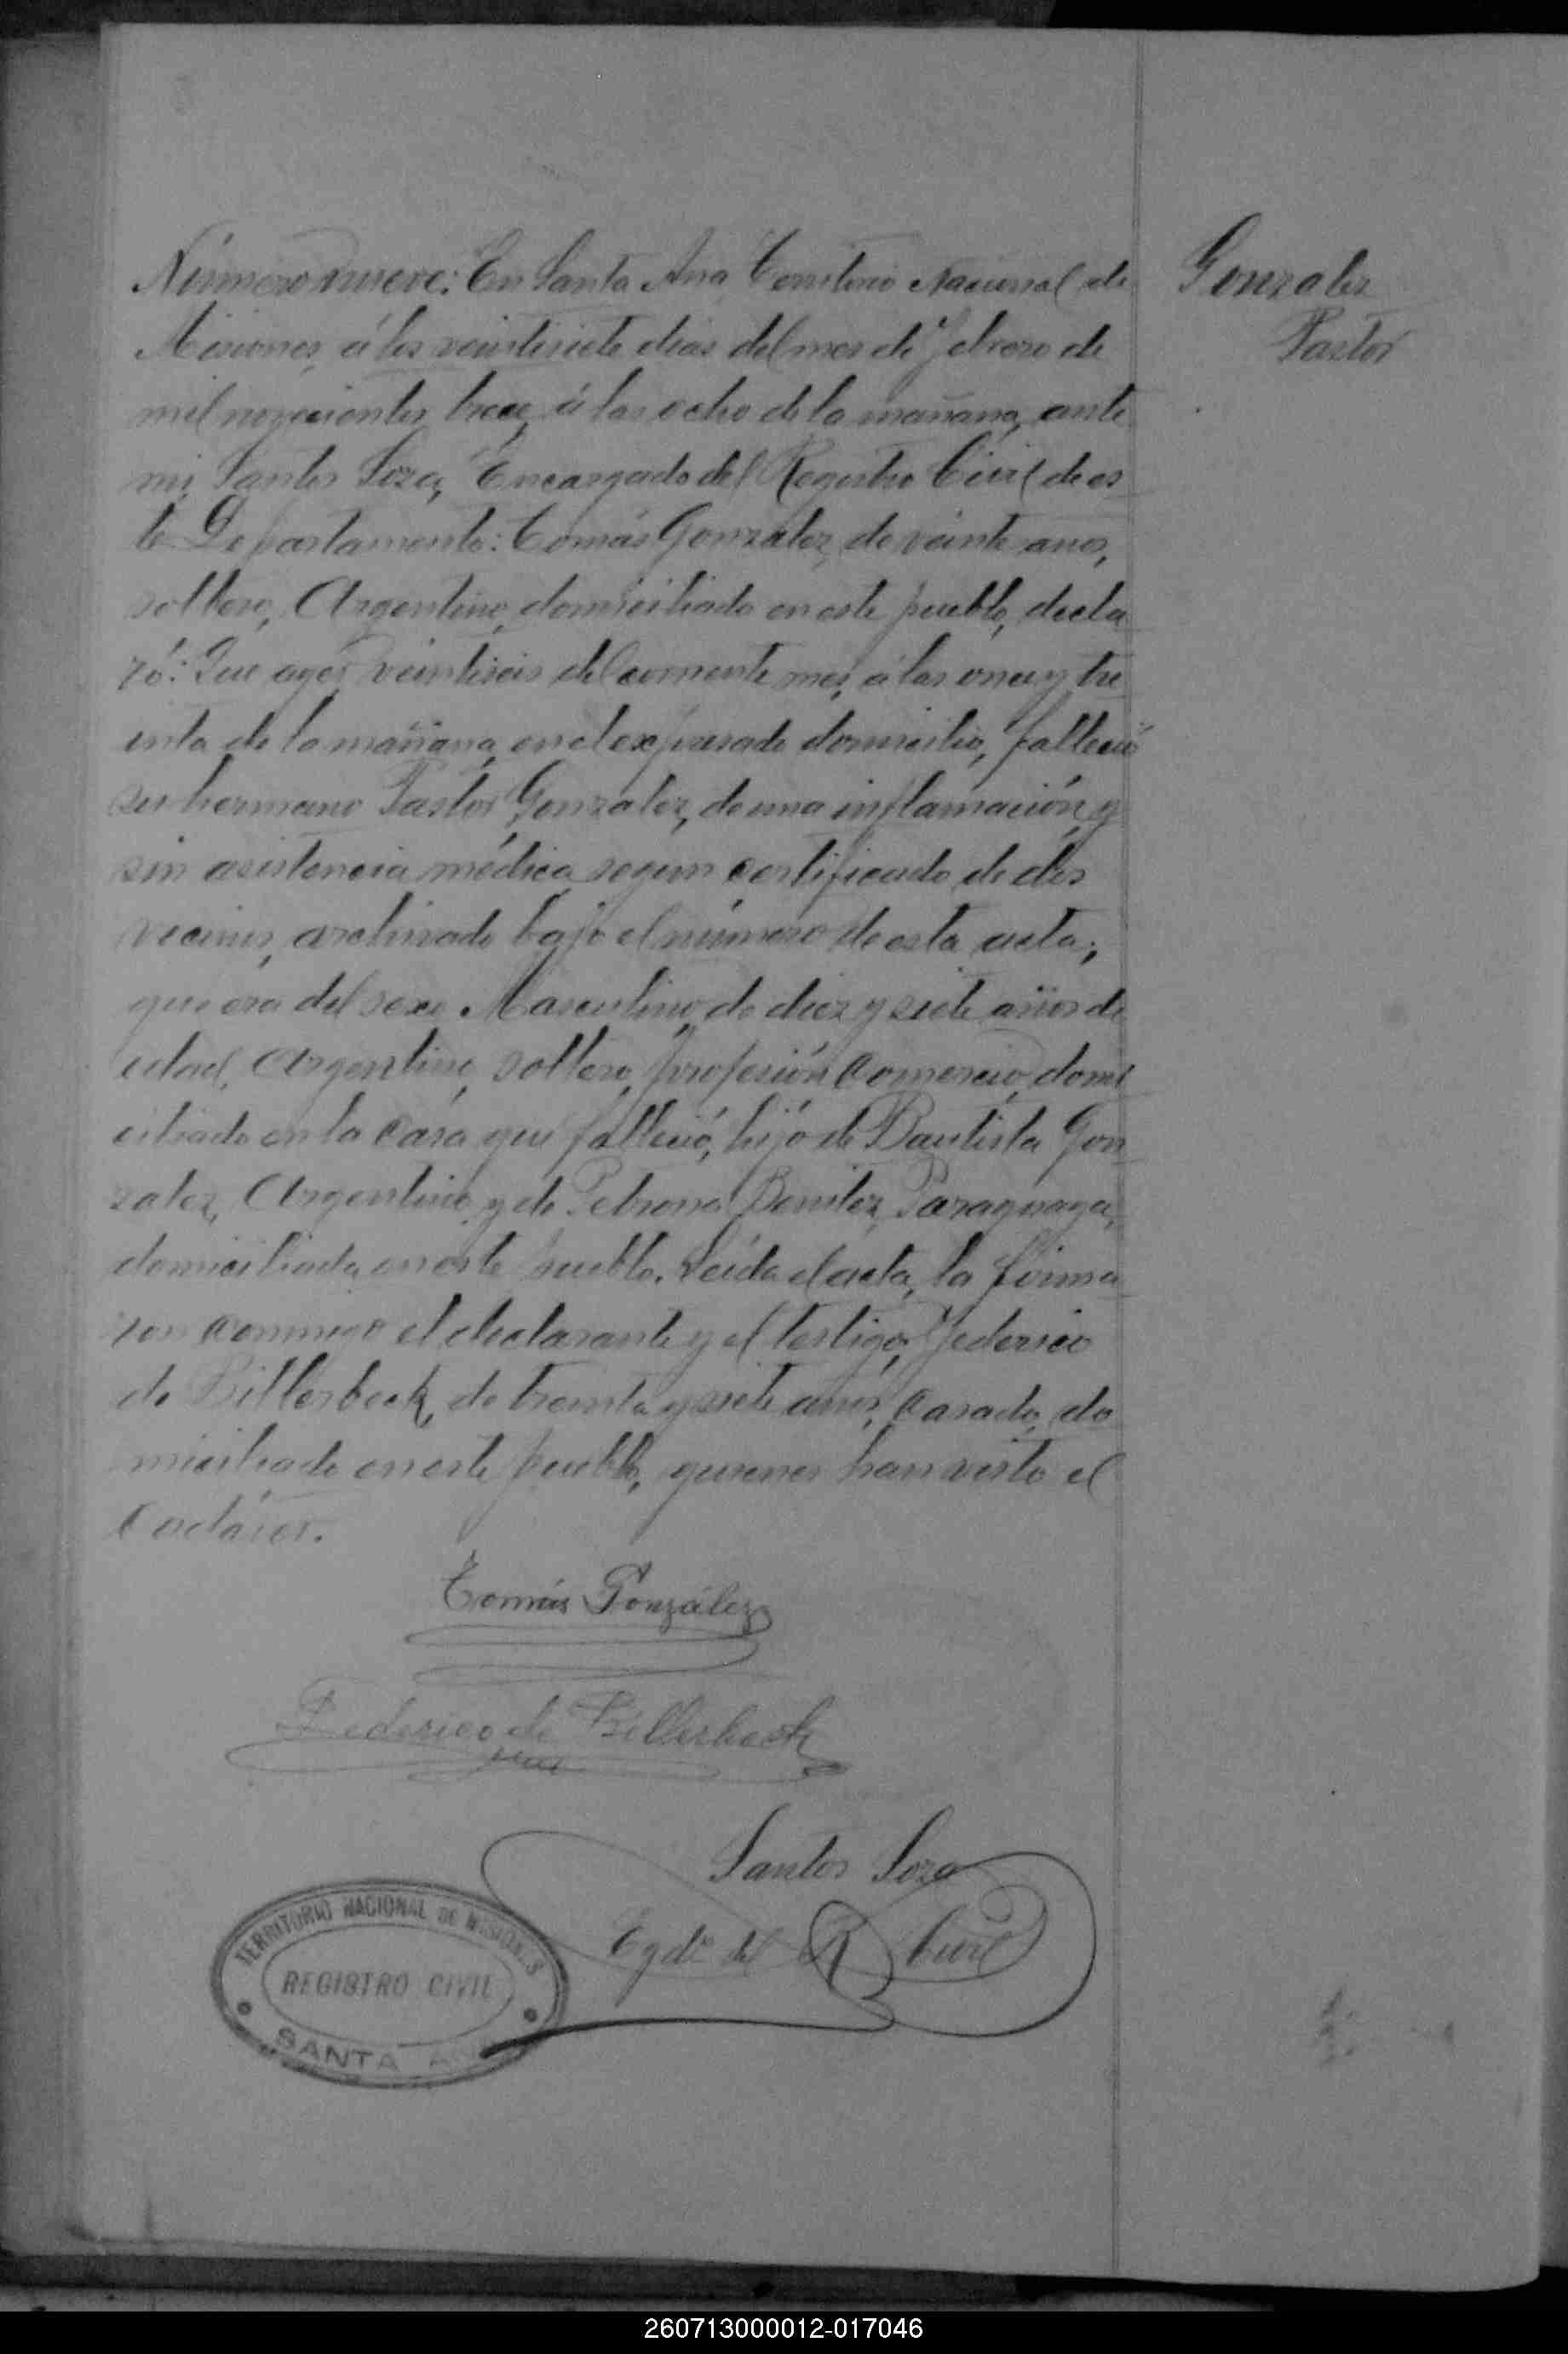 Número nueve: En Santa Ana Territorio Nacional de
Misiones, á los veintisiete dias del mes de Febrero de
mil novecientos trece, á las ocho de la mañana, ante
mi, Santos Soza, Encargado del Registro Civil de es
te Departamento: Tomás Gonzalez, de veinte anos,
soltero, Argentino, domiciliado en este pueblo, decla
ró: Que ayer veintiseis del corriente mes, á las once y tre
inta de la mañana, en el expresado domicilio, falleció
su hermano Pastor Gonzalez, de una inflamación, y
sin asistencia médica segun certificado de dos
vecinos, archivado bajo el número de esta acta;
que era del sexo Masculino, de diez y siete años de
edad, Argentino, soltero, profesión comercio, domi
ciliado en la casa que falleció, hijo de Bautista Gon
zalez, Argentino y de Petrona Benitez, Paraguaya,
domiciliada en este pueblo. Leída el acta, la firma
ron conmigo el declarante y el testigo, Federico
de Billerbeck, de treinta y siete años, casado, do
miciliado en este pueblo, quienes han visto el
cadáver.
Gonzalez
Pastor
Tomás González
Federico de Billerbeck
Santos Soza
Egdo del R Civil
TERRITORIO NACIONAL DE MISIONES
REGISTRO CIVIL
SANTA A
260713000012-017046